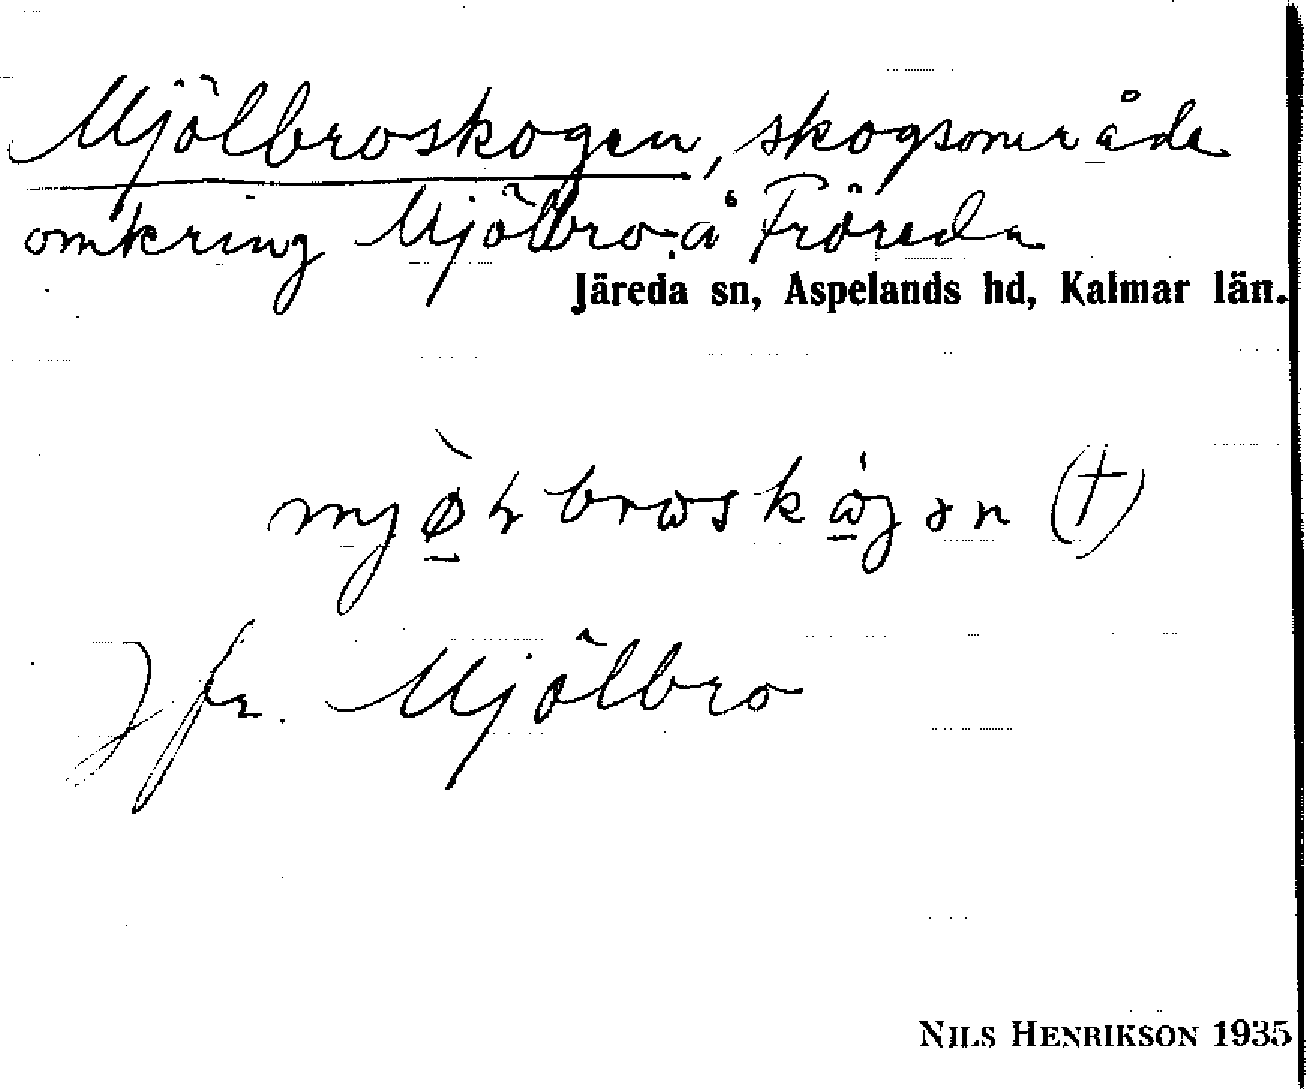 Mjölbroskogen, skogsområde
omkring Mjölbro å Fröreda
Järeda sn, Aspelands hd, Kalmar län.
(†)
Jfr. Mjölbro
NILS HENRIKSON 1935